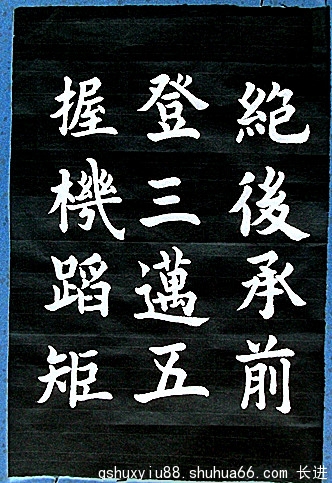 絶後承前
登三邁五
握機蹈矩
qshuxyiu88.shuhua66.com 长进